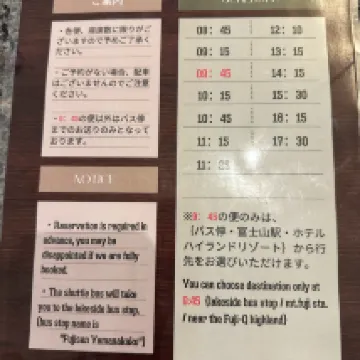 ご案内
・各便、席数に限りがご
ざいますので予めご了承く
ださい。
・ご予約がない場合、配車
はございませんのでご注意
ください。
・9：45の便以外はバス停
までのお送りのみとなって
おります。
NOTICE
・Reservation is required in
advance, you may be
disappointed if we are fully
booked.
・The shuttle bus will take
you to the lakeside bus stop.
(bus stop name is
"Fujisan Yamanakako")
08：45 12：10
09：15 13：15
09：45 14：15
10：15 15：30
10：45 16：15
11：15 17：30
11：
※9：45の便のみは、
{バス停・富士山駅・ホテル
ハイランドリゾート} から行
先をお選びいただけます。
You can choose destination only at
9:45 (lakeside bus stop / mt.fuji sta.
/ near the Fuji-Q highland)